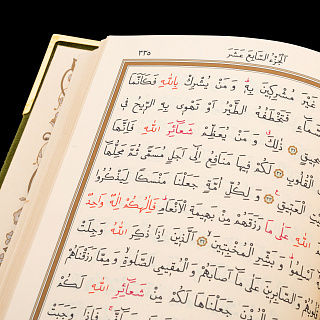 ٣٣٥ اَلْجُزْءُ السَّابِعَ عَشَرَ
غَيْرَ مُشْرِكِينَ بِهِ وَمَنْ يُشْرِكْ بِاللّٰهِ فَكَاَنَّمَا
فَتَخْطَفُهُ الطَّيْرُ اَوْ تَهْوِي بِهِ الرِّيحُ فِي
ذٰلِكَ وَمَنْ يُعَظِّمْ شَعَٓائِرَ اللّٰهِ فَاِنَّهَا
الْقُلُوبِ لَكُمْ فِيهَا مَنَافِعُ اِلٰٓى اَجَلٍ مُسَمًّى ثُمَّ مَحِلُّهَٓا
الْعَتِيقِ وَلِكُلِّ اُمَّةٍ جَعَلْنَا مَنْسَكًا لِيَذْكُرُوا
اللّٰهِ عَلٰى مَا رَزَقَهُمْ مِنْ بَهِيمَةِ الْاَنْعَامِ فَاِلٰهُكُمْ اِلٰهٌ وَاحِدٌ
اَسْلِمُوا وَبَشِّرِ الْمُخْبِتِينَ اَلَّذِينَ اِذَا ذُكِرَ اللّٰهُ وَجِلَتْ
قُلُوبُهُمْ وَالصَّابِرِينَ عَلٰى مَٓا اَصَابَهُمْ وَالْمُقِيمِي الصَّلٰوةِ وَمِمَّا رَزَقْنَاهُمْ
جَعَلْنَاهَا لَكُمْ مِنْ شَعَٓائِرِ اللّٰهِ لَكُمْ
فَاِذَا وَجَبَتْ